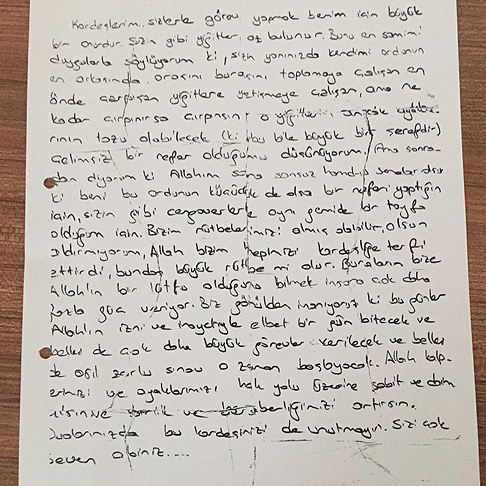 Kardeşlerim, sizlerle görev yapmak benim için büyük
bir onurdur. Sizin gibi yiğitler az bulunur. Bunu en samimi
duygularla söylüyorum ki, sizin yanınızda kendimi ordunun
en arkasında orasını burasını toplamaya çalışan en
önde çarpışan yiğitlere yetişmeye çalışan, ama ne
kadar çırpınırsa çırpınsın o yiğitlerin ancak
rının tozu olabilecek (ki bu bile büyük bir şereftir)
çelimsiz bir nefer olduğumu düşünüyorum. Ama sonra-
dan diyorum ki Allahım sana sonsuz hamdu senalar olsun
ki beni bu ordunun küçücük de olsa bir neferi yaptığın
için, sizin gibi cengaverlerle aynı gemide bir tayfa
olduğum için. Bizim rütbelerimizi almış olabilir, olsun
aldırmıyorum, Allah bizim hepimizi kardeşliğe terfi
ettirdi, bundan büyük rütbe mi olur. Buraların bize
Allah'ın bir lütfu olduğunu bilmek insana çok daha
fazla güç veriyor. Biz gönülden inanıyoruz ki bu günler
Allah'ın izni ve inayetiyle elbet bir gün bitecek ve
belki de çok daha büyük görevler verilecek ve belki
de asıl zorlu sınav o zaman başlayacak. Allah kalp-
lerimizi ve ayaklarımızı hak yolu üzerine sabit ve daim
etsin ve birliğimizi artırsın.
Dualarınızda bu kardeşinizi de unutmayın. Sizi çok
seven abiniz....